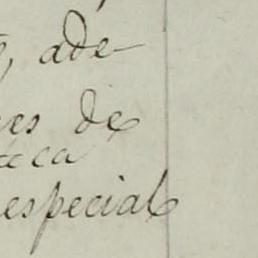 , ade-
es de
ca
especial